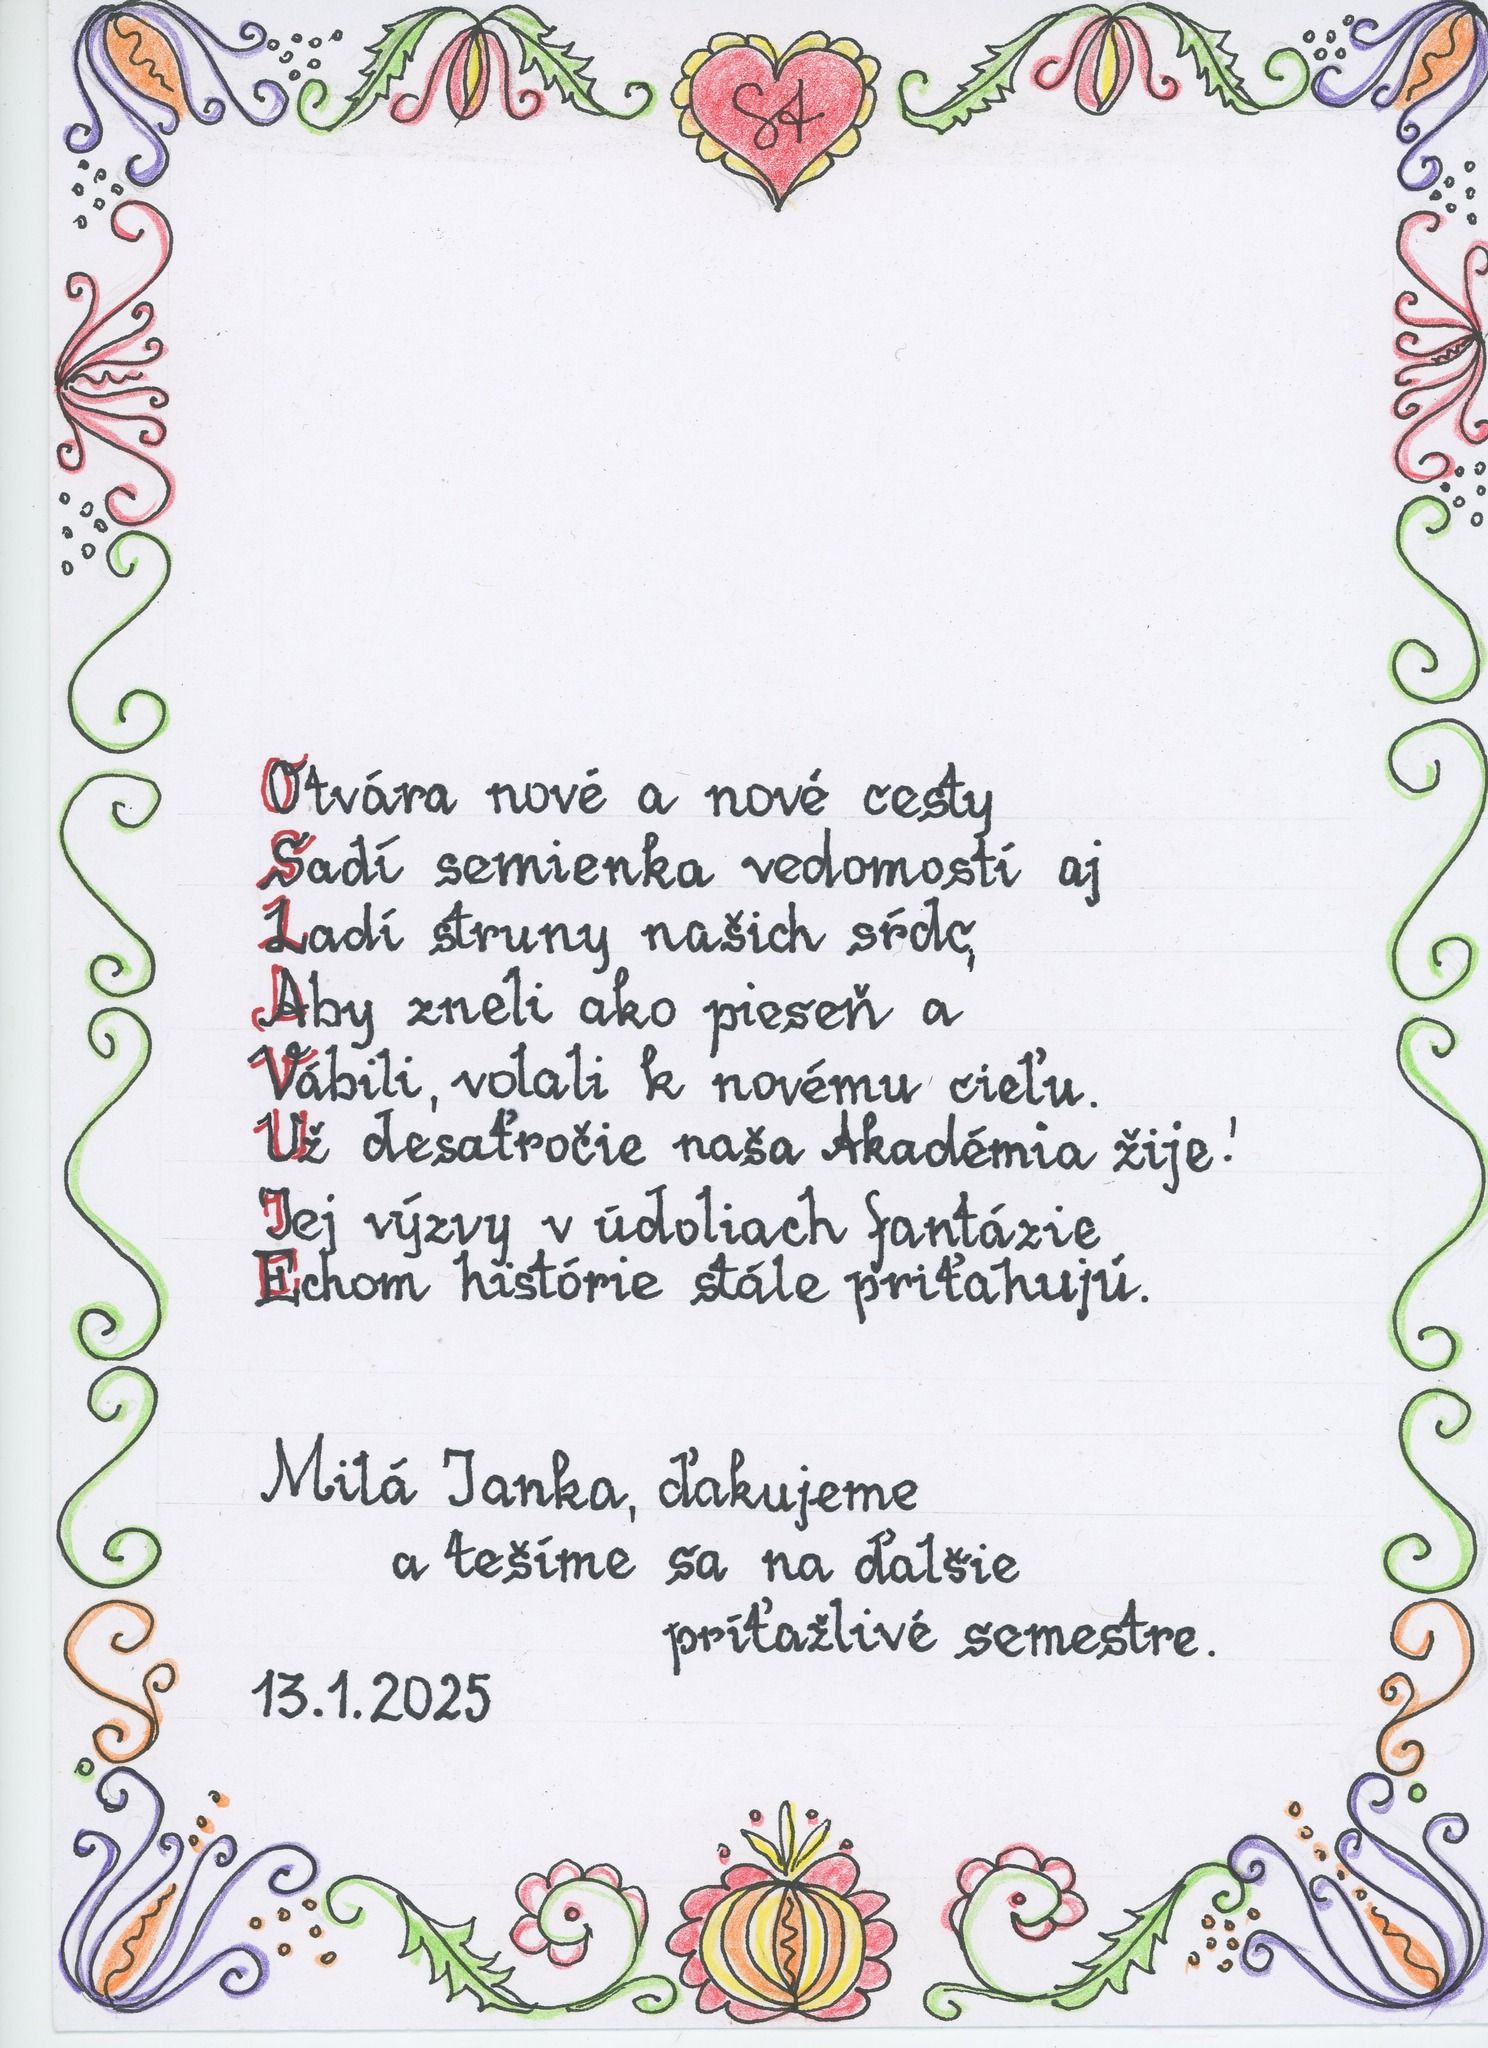 SA
Otvára nové a nové cesty
Sadí semienka vedomostí aj
Ladí struny našich sŕdc,
Aby zneli ako pieseň a
Vábili, volali k novému cieľu.
Už desaťročie naša Akadémia žije!
Jej výzvy v údoliach fantázie
Echom histórie stále priťahujú.
Milá Janka, ďakujeme
a tešíme sa na ďalšie
príťažlivé semestre.
13.1.2025